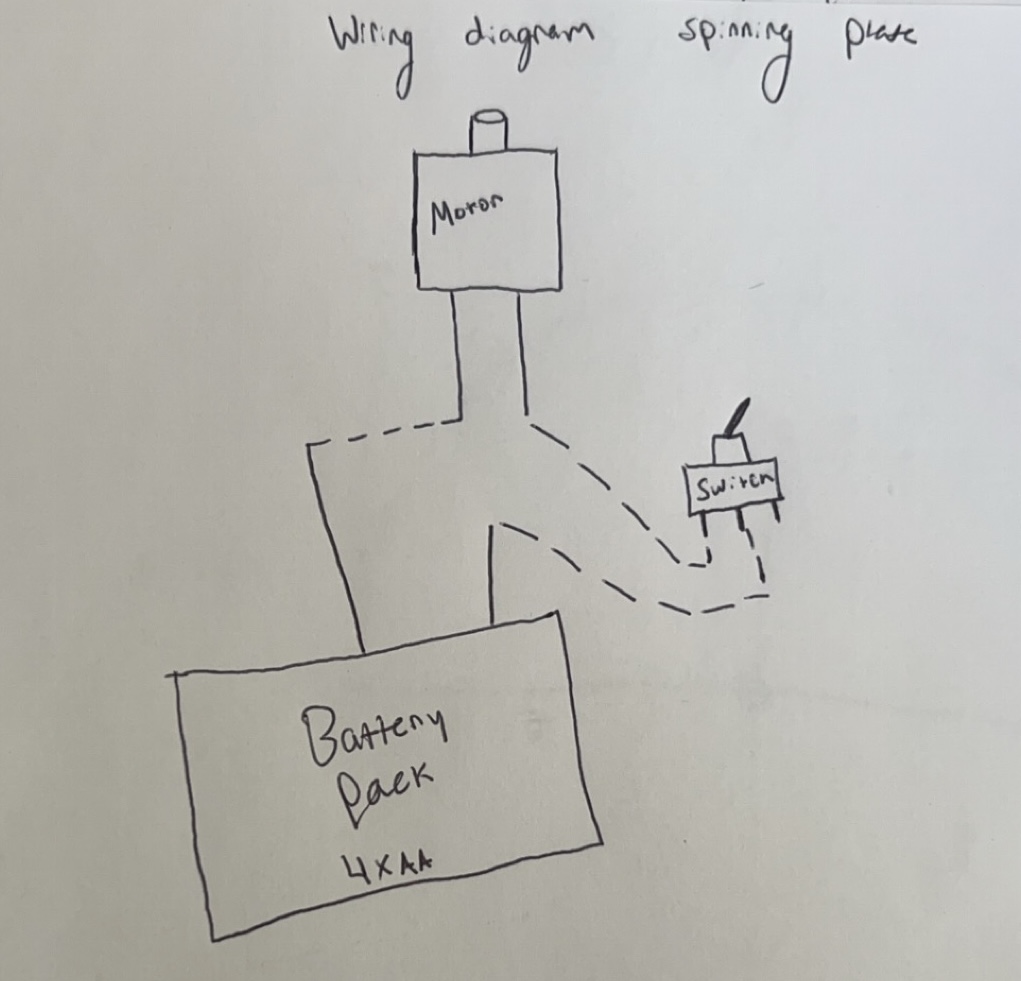 Wiring diagram spinning plate
Motor
Switch
Battery
Pack
4xAA